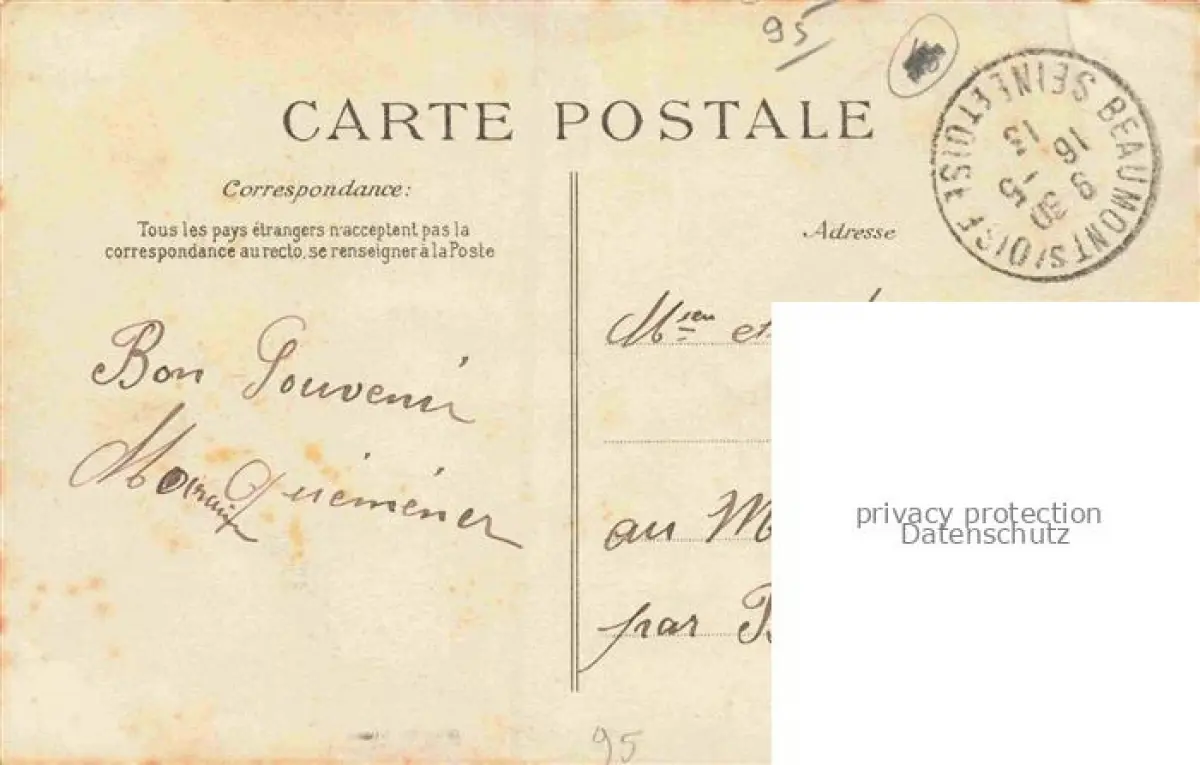 95
CARTE POSTALE
BEAUMONT S/OISE SEINE ET OISE
Correspondance:
Tous les pays étrangers n'acceptent pas la
correspondance au recto, se renseigner à la Poste
Adresse
Bon Souvenir
Quéméner
Msieu et
au M
par
privacy protection
Datenschutz
95